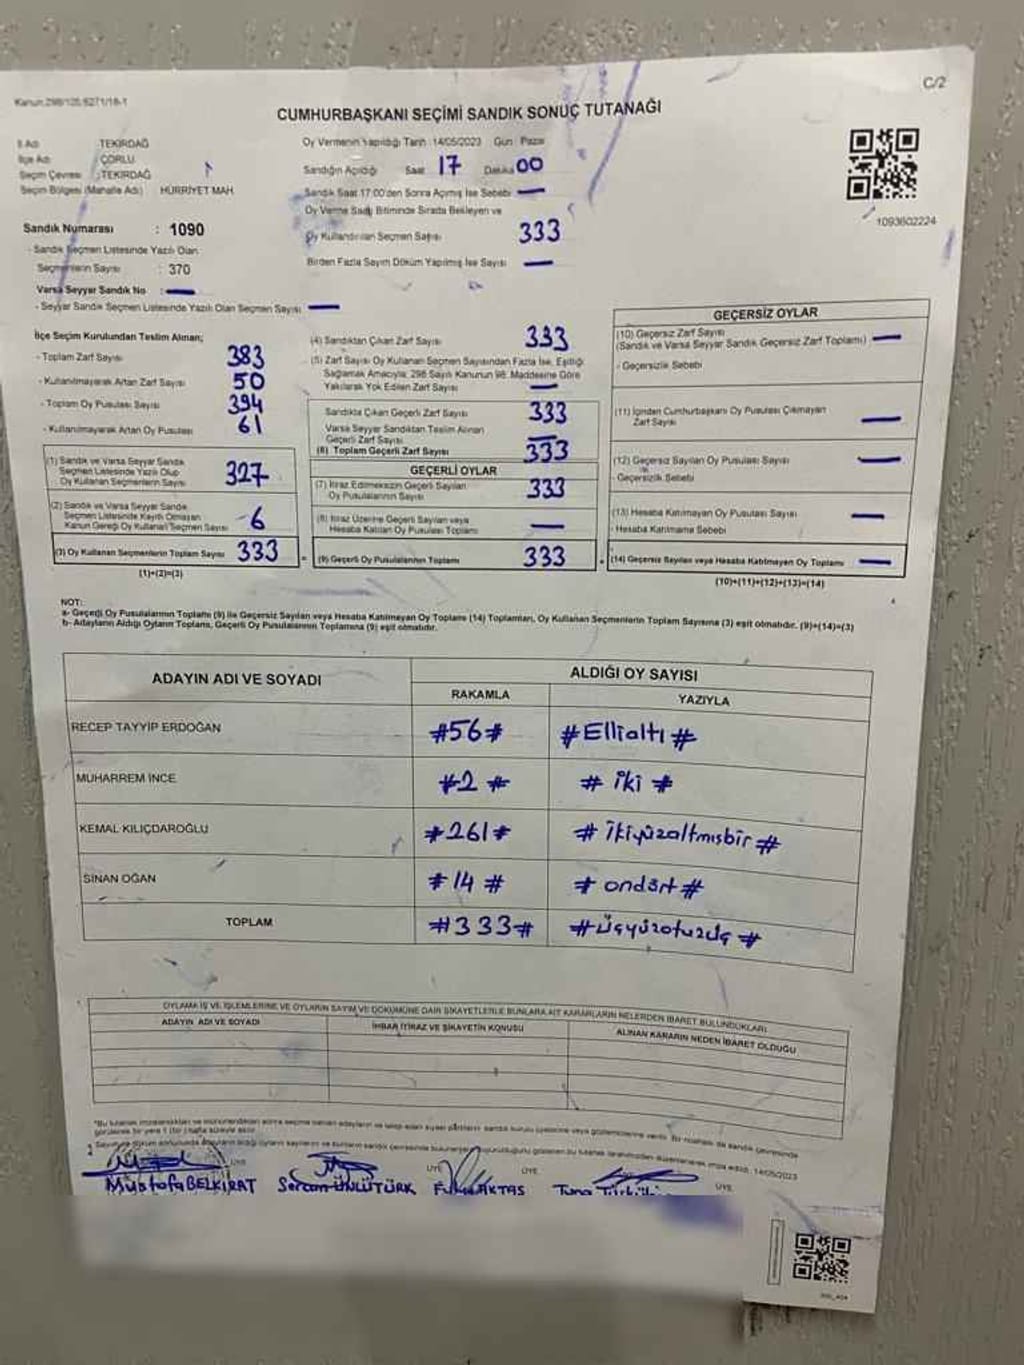 Kanun:298/105,6271/18-1
C/2
CUMHURBAŞKANI SEÇİMİ SANDIK SONUÇ TUTANAĞI
İl Adı TEKİRDAĞ
İlçe Adı ÇORLU
Seçim Çevresi :TEKİRDAĞ
Seçim Bölgesi (Mahalle Adı) HÜRRİYET MAH.
Sandık Numarası : 1090
- Sandık Seçmen Listesinde Yazılı Olan
Seçmenlerin Sayısı : 370
Varsa Seyyar Sandık No : —
- Seyyar Sandık Seçmen Listesinde Yazılı Olan Seçmen Sayısı —
Oy Vermenin Yapıldığı Tarih :14/05/2023 Gün : Pazar
Sandığın Açıldığı Saat 17 Dakika 00
Sandık Saat 17:00'den Sonra Açılmış İse Sebebi —
Oy Verme Saati Bitiminde Sırada Bekleyen ve
Oy Kullandırılan Seçmen Sayısı 333
Birden Fazla Sayım Döküm Yapılmış İse Sayısı —
1093602224
İlçe Seçim Kurulundan Teslim Alınan;
- Toplam Zarf Sayısı 383
- Kullanılmayarak Artan Zarf Sayısı 50
- Toplam Oy Pusulası Sayısı 394
- Kullanılmayarak Artan Oy Pusulası 61
(1) Sandık ve Varsa Seyyar Sandık
Seçmen Listesinde Yazılı Olup
Oy Kullanan Seçmenlerin Sayısı 327
(2) Sandık ve Varsa Seyyar Sandık
Seçmen Listesinde Kayıtlı Olmayan
Kanun Gereği Oy Kullanan Seçmen Sayısı -6
(3) Oy Kullanan Seçmenlerin Toplam Sayısı 333
(1)+(2)=(3)
(4) Sandıktan Çıkan Zarf Sayısı 333
(5) Zarf Sayısı Oy Kullanan Seçmen Sayısından Fazla İse, Eşitliği
Sağlamak Amacıyla; 298 Sayılı Kanunun 98. Maddesine Göre
Yakılarak Yok Edilen Zarf Sayısı —
Sandıkta Çıkan Geçerli Zarf Sayısı 333
Varsa Seyyar Sandıktan Teslim Alınan
Geçerli Zarf Sayısı —
(6) Toplam Geçerli Zarf Sayısı 333
GEÇERLİ OYLAR
(7) İtiraz Edilmeksizin Geçerli Sayılan
Oy Pusulalarının Sayısı 333
(8) İtiraz Üzerine Geçerli Sayılan veya
Hesaba Katılan Oy Pusulası Toplamı —
(9) Geçerli Oy Pusulalarının Toplamı 333
GEÇERSİZ OYLAR
(10) Geçersiz Zarf Sayısı
(Sandık ve Varsa Seyyar Sandık Geçersiz Zarf Toplamı) —
- Geçersizlik Sebebi
(11) İçinden Cumhurbaşkanı Oy Pusulası Çıkmayan
Zarf Sayısı —
(12) Geçersiz Sayılan Oy Pusulası Sayısı —
- Geçersizlik Sebebi
(13) Hesaba Katılmayan Oy Pusulası Sayısı —
- Hesaba Katılmama Sebebi
(14) Geçersiz Sayılan veya Hesaba Katılmayan Oy Toplamı —
(10)+(11)+(12)+(13)=(14)
NOT:
a- Geçerli Oy Pusulalarının Toplamı (9) ile Geçersiz Sayılan veya Hesaba Katılmayan Oy Toplamı (14) Toplamları, Oy Kullanan Seçmenlerin Toplam Sayısına (3) eşit olmalıdır. (9)+(14)=(3)
b- Adayların Aldığı Oyların Toplamı, Geçerli Oy Pusulalarının Toplamına (9) eşit olmalıdır.
ADAYIN ADI VE SOYADI ALDIĞI OY SAYISI
RAKAMLA YAZIYLA
RECEP TAYYİP ERDOĞAN #56# #Ellialtı#
MUHARREM İNCE #2# #iki#
KEMAL KILIÇDAROĞLU #261# #İkiyüzaltmışbir#
SİNAN OĞAN #14# #ondört#
TOPLAM #333# #üçyüzotuzüç#
OYLAMA İŞ VE İŞLEMLERİNE VE OYLARIN SAYIM VE DÖKÜMÜNE DAİR ŞİKAYETLERLE BUNLARA AİT KARARLARIN NELERDEN İBARET BULUNDUKLARI
ADAYIN ADI VE SOYADI İHBAR İTİRAZ VE ŞİKAYETİN KONUSU ALINAN KARARIN NEDEN İBARET OLDUĞU
ÜYE ÜYE ÜYE ÜYE
Mustafa BELKIRAT Sercan ÜNLÜTÜRK AKTAS Tuna